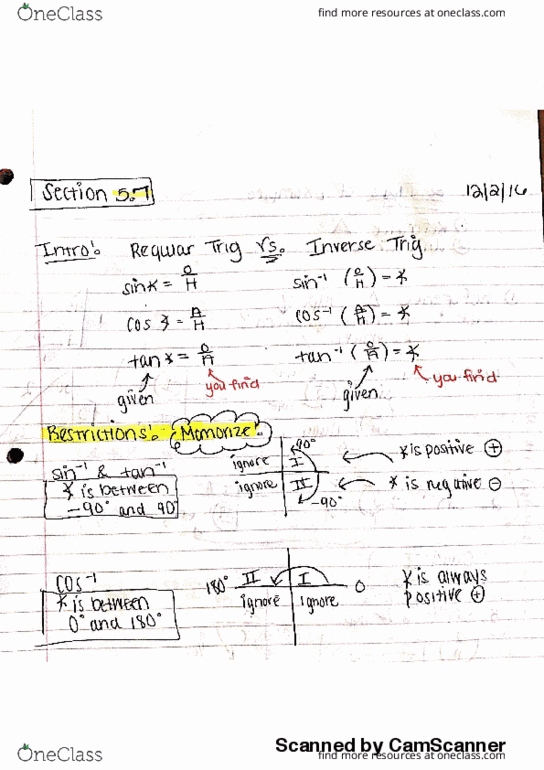 OneClass
find more resources at oneclass.com
Section 5.7
12/2/16
Intro: Regular Trig vs. Inverse Trig
sin∡ = O/H
sin⁻¹ (O/H) = ∡
cos ∡ = A/H
cos⁻¹ (A/H) = ∡
tan ∡ = O/A
tan⁻¹ (O/A) = ∡
given
you find
given
you find
Restrictions: Memorize!
sin⁻¹ & tan⁻¹
∡ is between
-90° and 90°
ignore I 90°
ignore -90°
∡ is positive +
∡ is negative -
cos⁻¹
∡ is between
0° and 180°
180° II I 0
ignore ignore
∡ is always
positive +
Scanned by CamScanner
OneClass
find more resources at oneclass.com